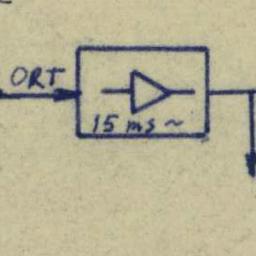 ORT
15 ms ~